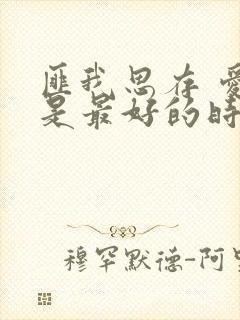 匪我思存 爱
是最好的时
穆罕默德-阿里